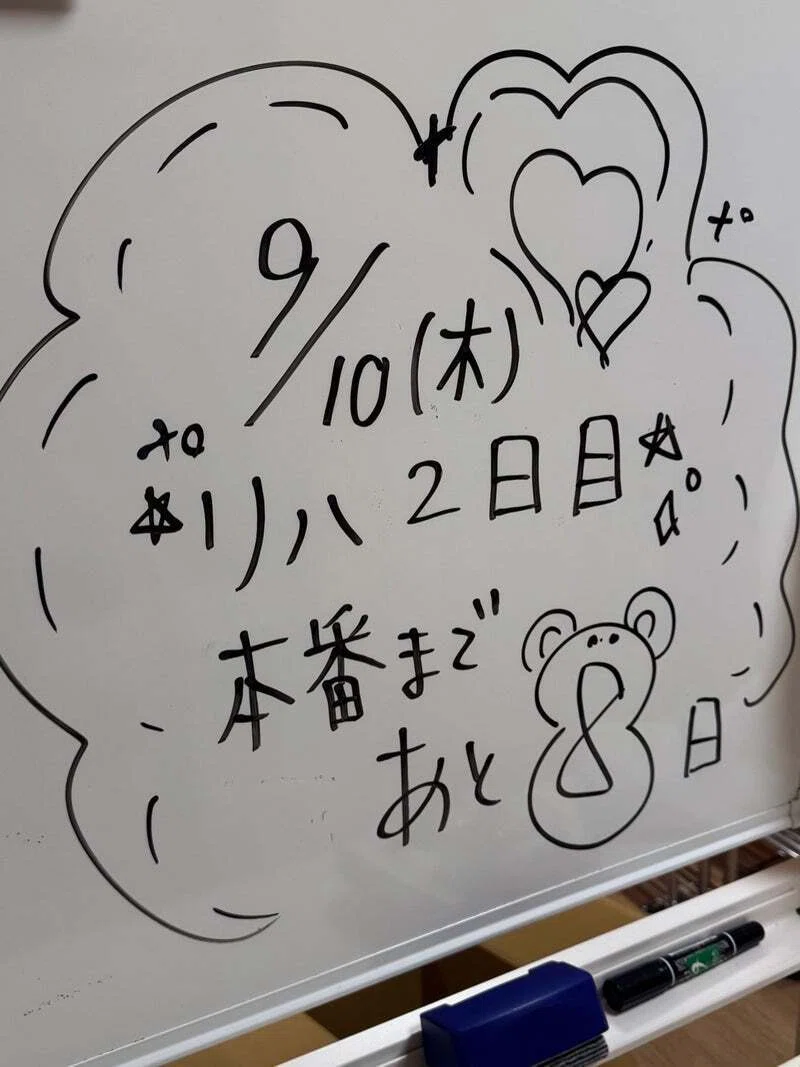 9/10(木)
リハ2日目
本番まで
あと8日